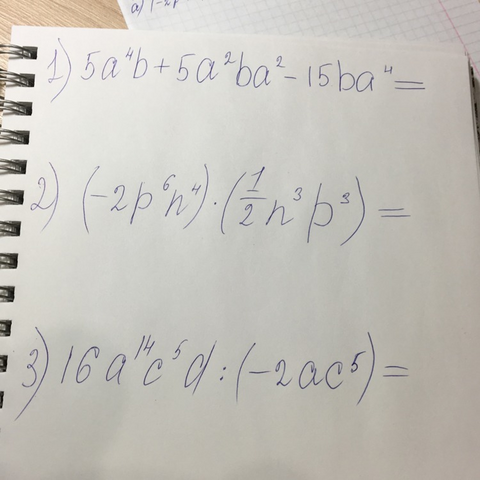 a) (-2p
1) 5a⁴b + 5a²ba² - 15ba⁴ =
2) (-2p⁶n⁴) · (1/2 n³p³) =
3) 16a¹⁴c⁵d : (-2ac⁵) =